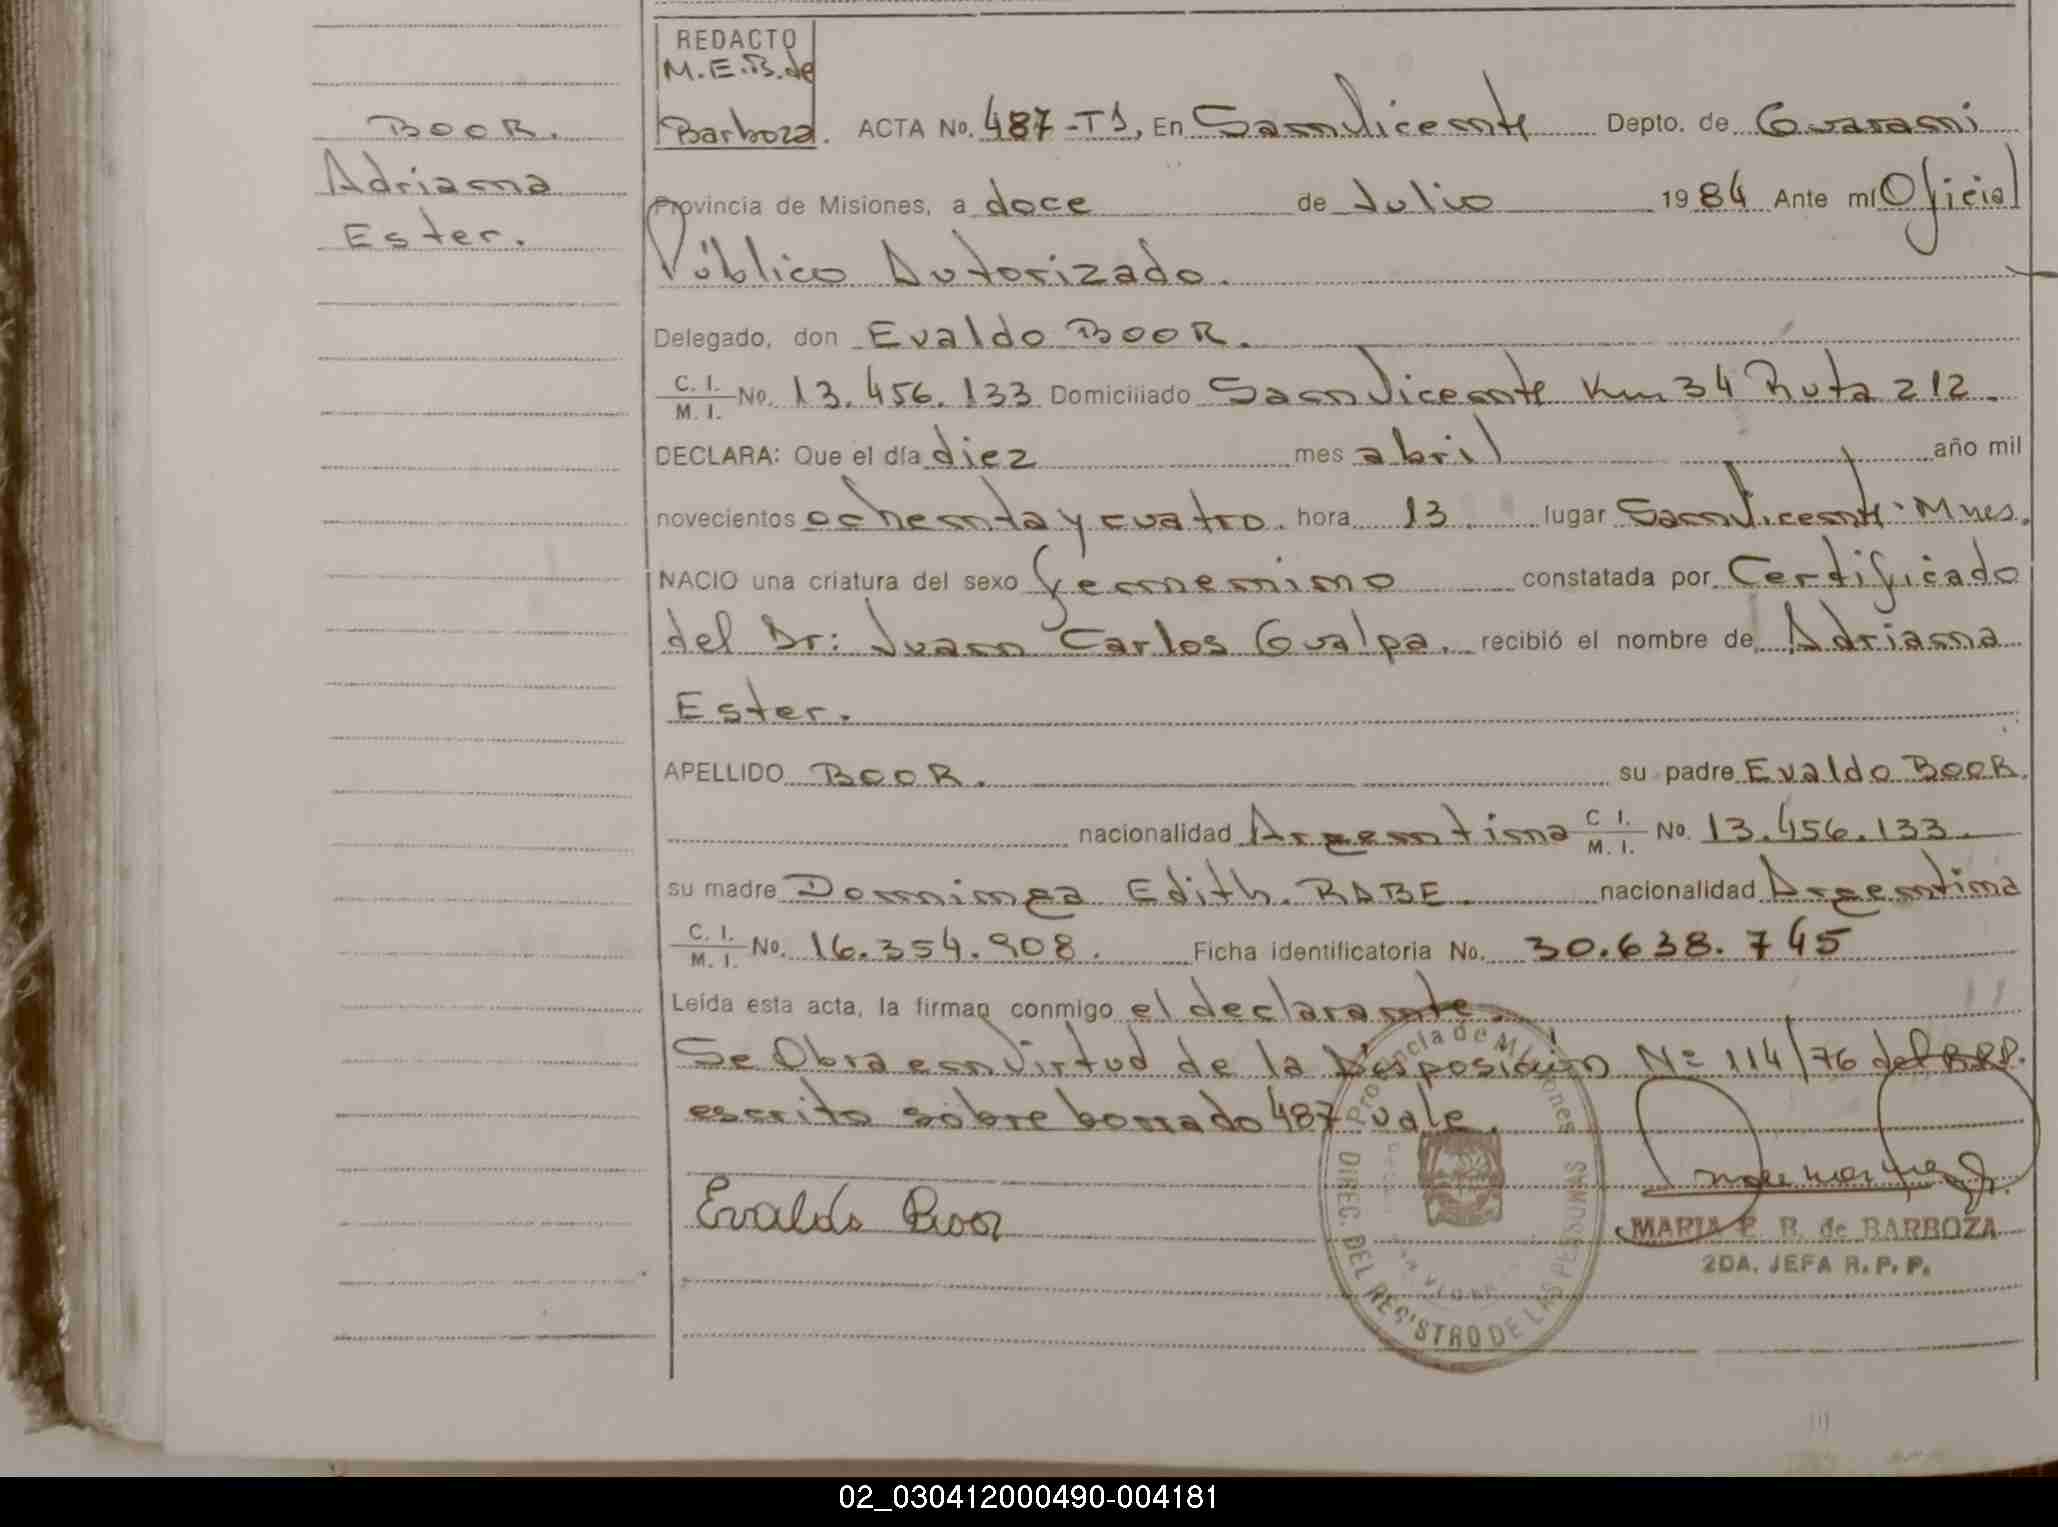 REDACTO
M.E.B. de
Barboza.
BOOR.
Adriana
Ester.
ACTA No. 487-T1, En San Vicente Depto. de Guarani
Provincia de Misiones, a doce de Julio 1984 Ante mí Oficial
Público Autorizado.
Delegado, don Evaldo BOOR.
C. I. / M. I. No. 13.456.133 Domiciliado San Vicente Km 34 Ruta 212.
DECLARA: Que el día diez mes abril año mil
novecientos ochenta y cuatro. hora 13. lugar San Vicente. Mnes.
NACIO una criatura del sexo femenino constatada por Certificado
del Dr: Juan Carlos Gualpa. recibió el nombre de Adriana
Ester.
APELLIDO BOOR. su padre Evaldo BOOR.
nacionalidad Argentina C. I. / M. I. No. 13.456.133.
su madre Dominga Edith. RABE. nacionalidad Argentina
C. I. / M. I. No. 16.354.908. Ficha identificatoria No. 30.638.745
Leída esta acta, la firman conmigo el declarante.
Se Obra en Virtud de la Disposición Nº 114/76 del
escrito sobre borrado 487 vale.
Evaldo Boor
Provincia de Misiones
DIREC. DEL REGISTRO DE LAS PERSONAS
MARIA E. B. de BARBOZA
2DA. JEFA R. P. P.
02_030412000490-004181